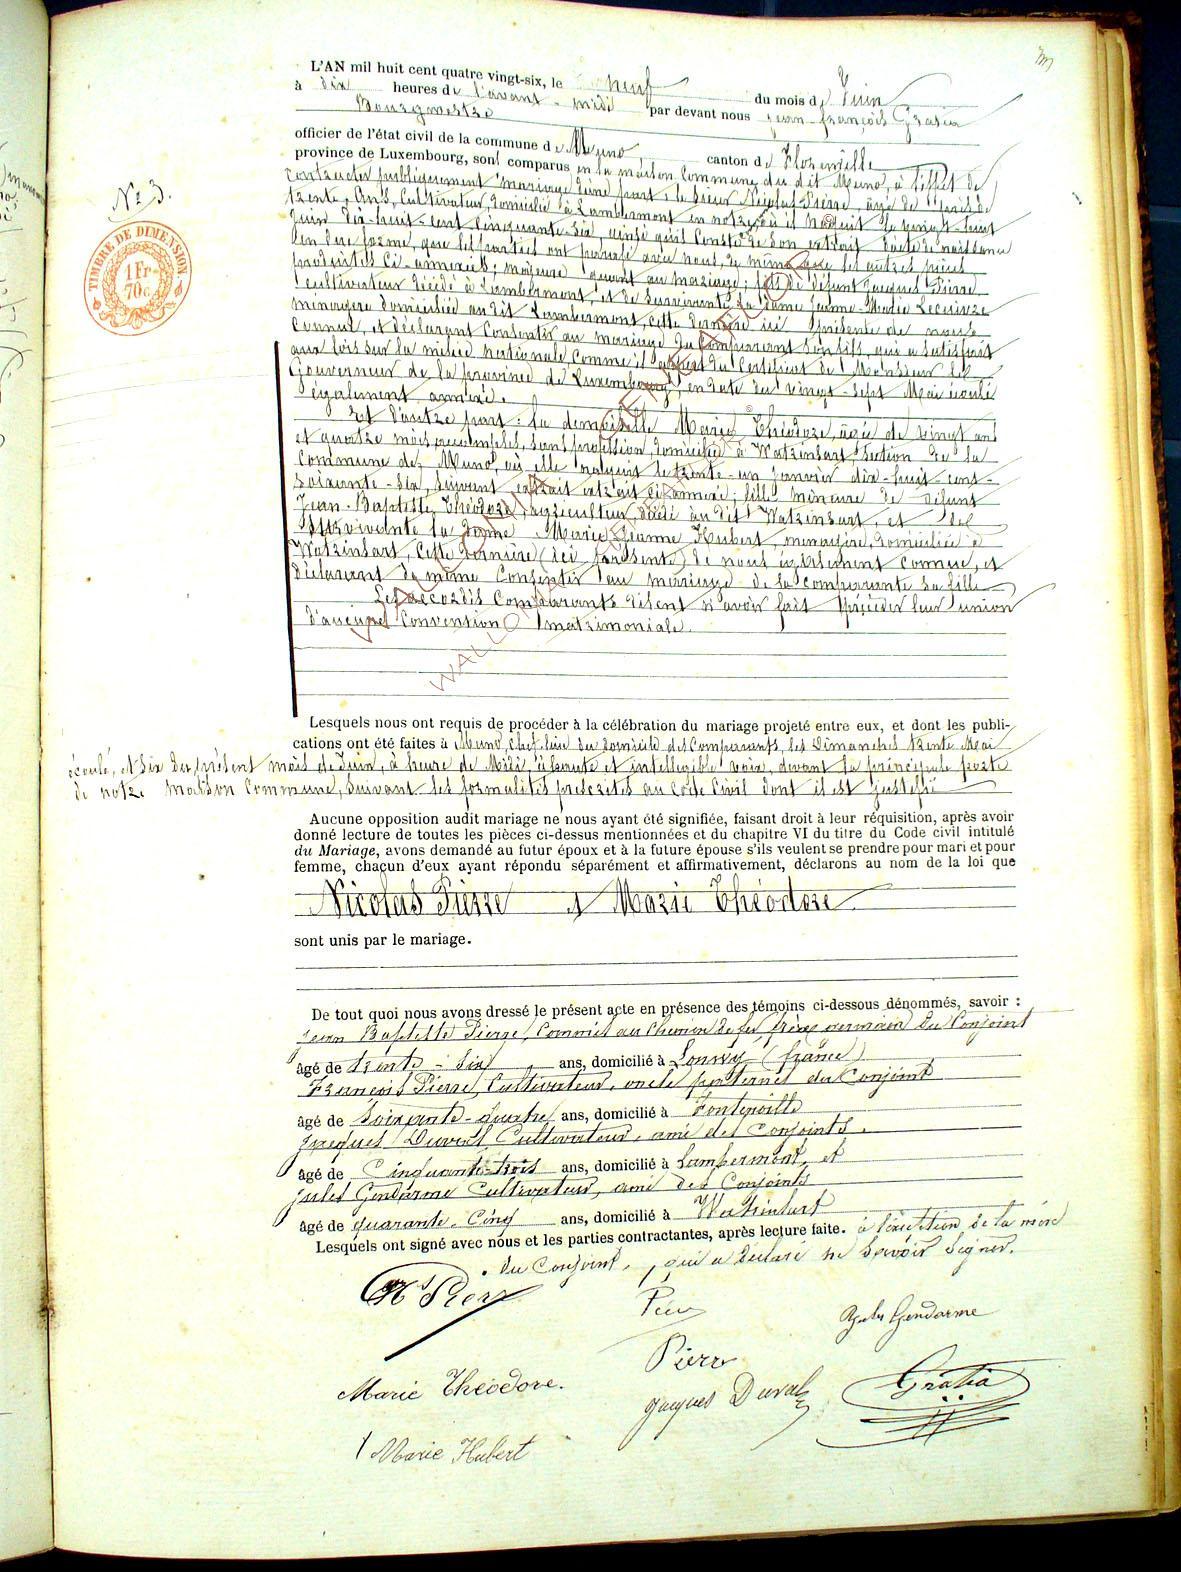 L'AN mil huit cent quatre vingt-six, le neuf du mois de Juin
à dix heures de l'avant-midi par devant nous Jean-François Gratia
Bourgmestre
officier de l'état civil de la commune de Muno canton de Florenville
province de Luxembourg, sont comparus en la maison Commune du dit Muno, à l'effet de
contracter publiquement mariage d'une part: le sieur Nicolas Pierre, âgé de près de
trente Ans, Cultivateur, domicilié à Lambermont en notre où il naquit le vingt-huit
Juin dix-huit-cent cinquante-six ainsi qu'il Conste de son extrait d'acte de naissance
en due forme, que les parties ont paraphé avec nous, de même que les autres pièces
produites ci-annexées; majeur quant au mariage; fils de défunt Jacques Pierre
cultivateur décédé à Lambermont, et de survivante la dame Jeanne-Marie Lecuivre
ménagère domiciliée au dit Lambermont, cette dernière ici présente de nous
connue, et déclarant Consentir au mariage du Comparant son fils, qui a satisfait
aux lois sur la milice nationale comme il du Certificat de Monsieur le
Gouverneur de la province de Luxembourg, en date du vingt-sept Mai écoulé
également annexé.
Et d'autre part: la demoiselle Marie Théodore, âgée de vingt ans
et quatre mois accomplis, sans profession, domiciliée à Watrinsart, section de la
Commune de Muno, où elle naquit le trente-un Janvier dix-huit-cent-
soixante-six, suivant extrait ci annexé; fille mineure de défunt
Jean-Baptiste Théodore, agriculteur, décédé au dit Watrinsart, et de
survivante la dame Marie Jeanne Hubert, ménagère, domiciliée à
Watrinsart, cette dernière (ici présente) de nous également connue, et
déclarant de même Consentir au mariage de la comparante sa fille
Lesquels Comparants disent n'avoir fait précéder leur union
d'aucune Convention matrimoniale.
Nº 3.
TIMBRE DE DIMENSION
1 Fr
70c
Lesquels nous ont requis de procéder à la célébration du mariage projeté entre eux, et dont les publi-
cations ont été faites à Muno, chef-lieu du domicile des Comparants, les Dimanches trente Mai
écoulé, et six du présent mois de Juin, à heure de Midi, à haute et intelligible voix, devant la principale porte
de notre maison Commune, suivant les formalités prescrites au Code Civil dont il est justifié
Aucune opposition audit mariage ne nous ayant été signifiée, faisant droit à leur réquisition, après avoir
donné lecture de toutes les pièces ci-dessus mentionnées et du chapitre VI du titre du Code civil intitulé
du Mariage, avons demandé au futur époux et à la future épouse s'ils veulent se prendre pour mari et pour
femme, chacun d'eux ayant répondu séparément et affirmativement, déclarons au nom de la loi que
Nicolas Pierre et Marie Théodore
sont unis par le mariage.
De tout quoi nous avons dressé le présent acte en présence des témoins ci-dessous dénommés, savoir :
Jean Baptiste Pierre, Commis au Chemin de fer, frère germain du Conjoint
âgé de trente-six ans, domicilié à Longwy (france)
François Pierre, Cultivateur, oncle paternel du Conjoint
âgé de soixante-quatre ans, domicilié à Fontenoille
Jacques Duval Cultivateur, ami des Conjoints.
âgé de Cinquante-trois ans, domicilié à Lambermont, et
Jules Gendarme Cultivateur, ami des Conjoints
âgé de quarante-Cinq ans, domicilié à Watrinsart
Lesquels ont signé avec nous et les parties contractantes, après lecture faite. à l'exception de la mère
du Conjoint, qui a déclaré ne savoir signer.
Ns Pierre
Pierre
Jules Gendarme
Pierre
Gratia
Marie Théodore.
Jacques Duval
Marie Hubert